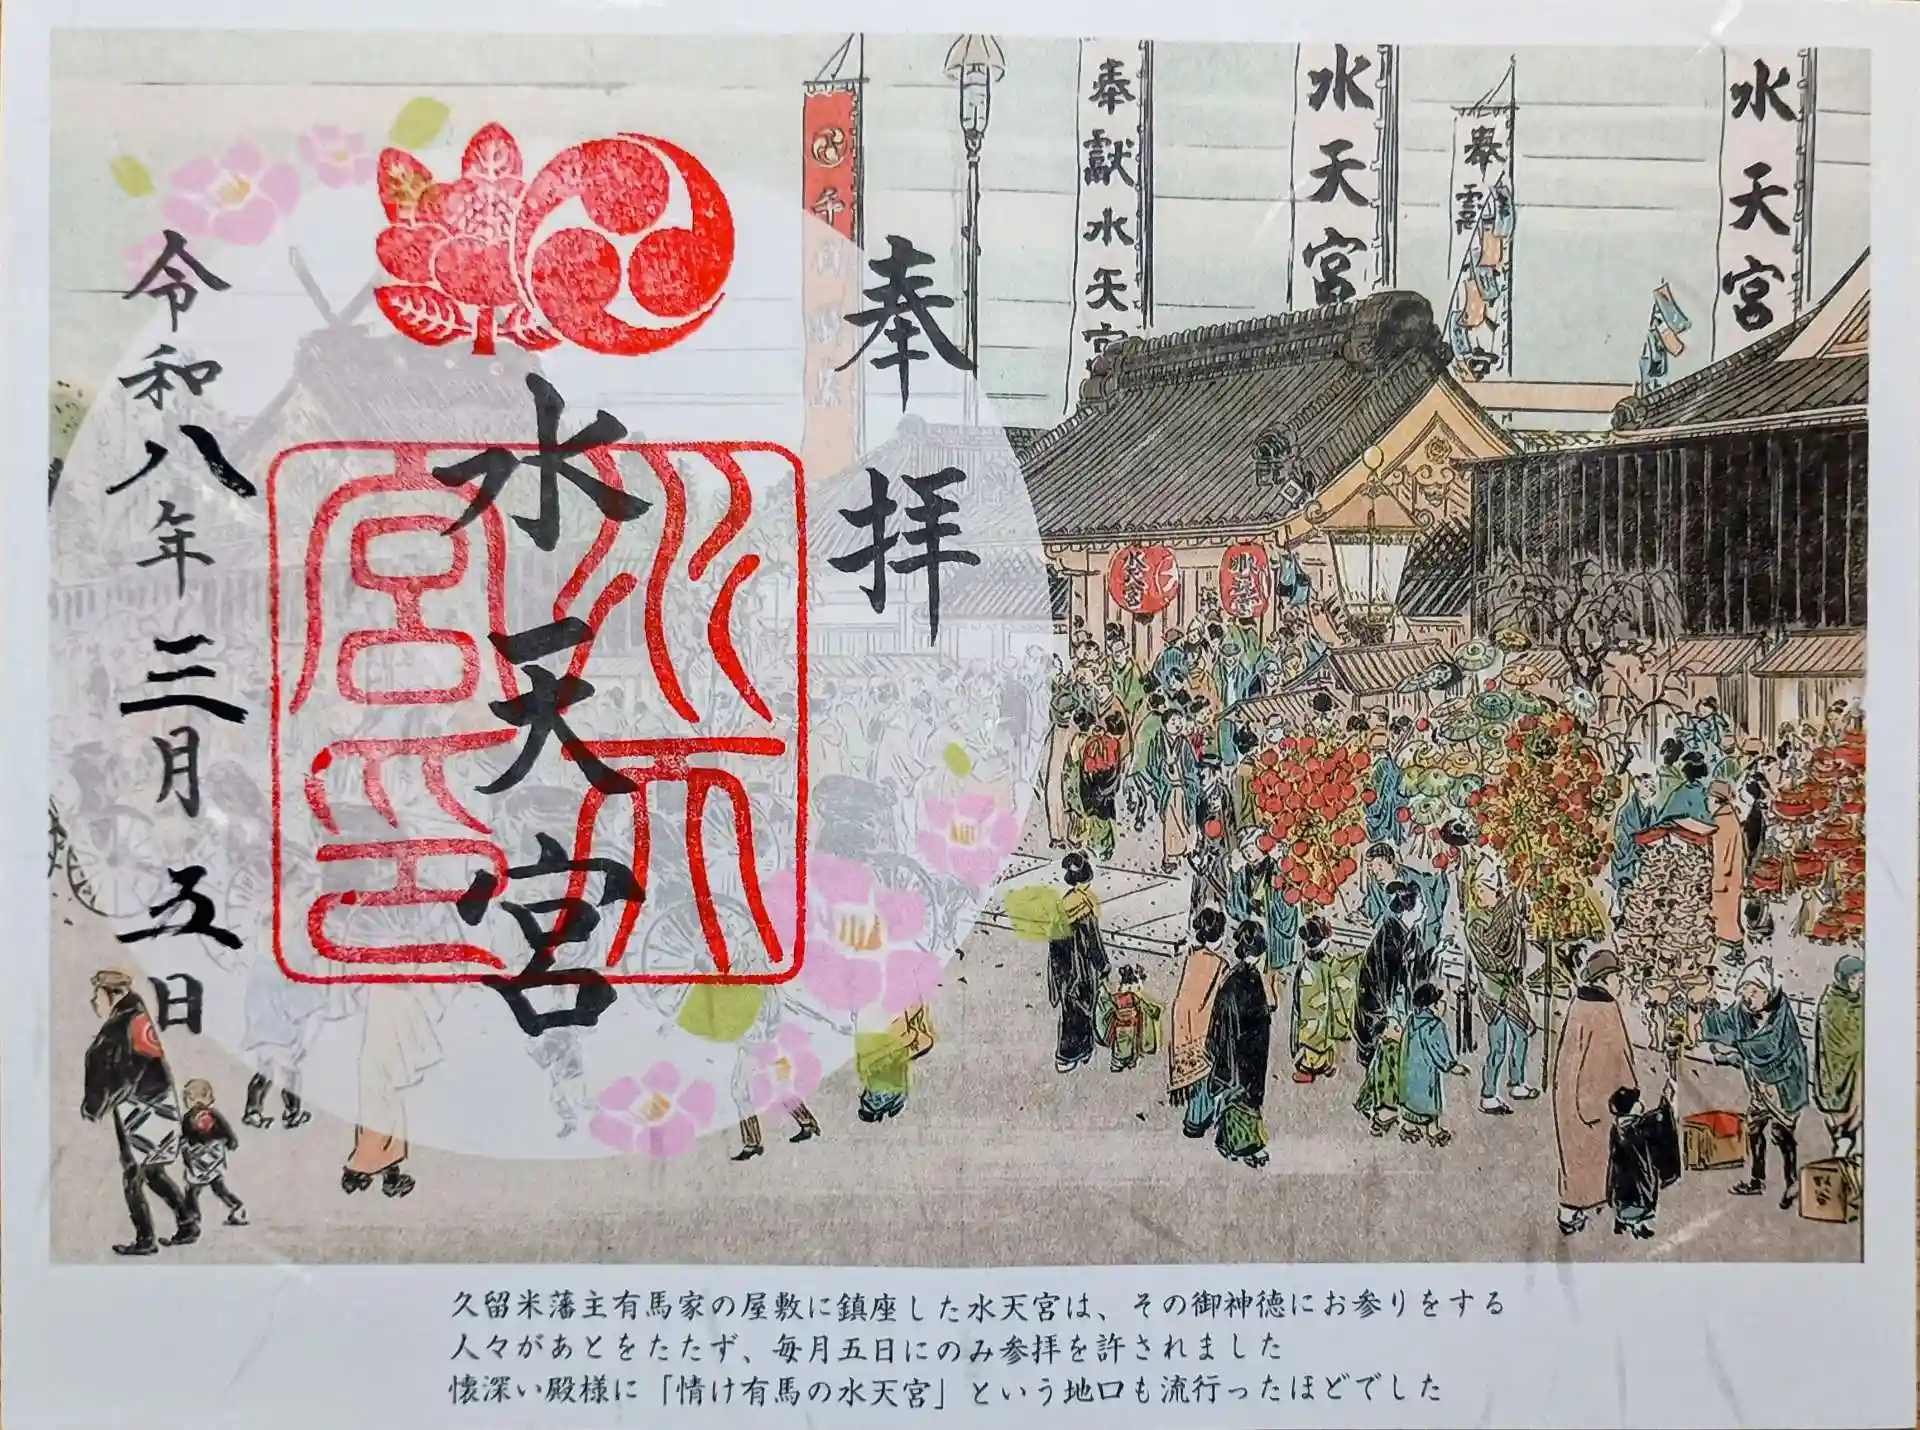 奉拝
水天宮
令和八年三月五日
水天宮印
奉獻水天宮
水天宮
水天宮
奉
水天宮
久留米藩主有馬家の屋敷に鎮座した水天宮は、その御神徳にお参りをする
人々があとをたたず、毎月五日にのみ参拝を許されました
懐深い殿様に「情け有馬の水天宮」という地口も流行ったほどでした